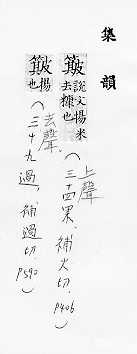 集韻
簸說文揚米去糠也（上聲、三十四果、補火切、P406）
簸揚也（去聲、三十九過、補過切、P590）